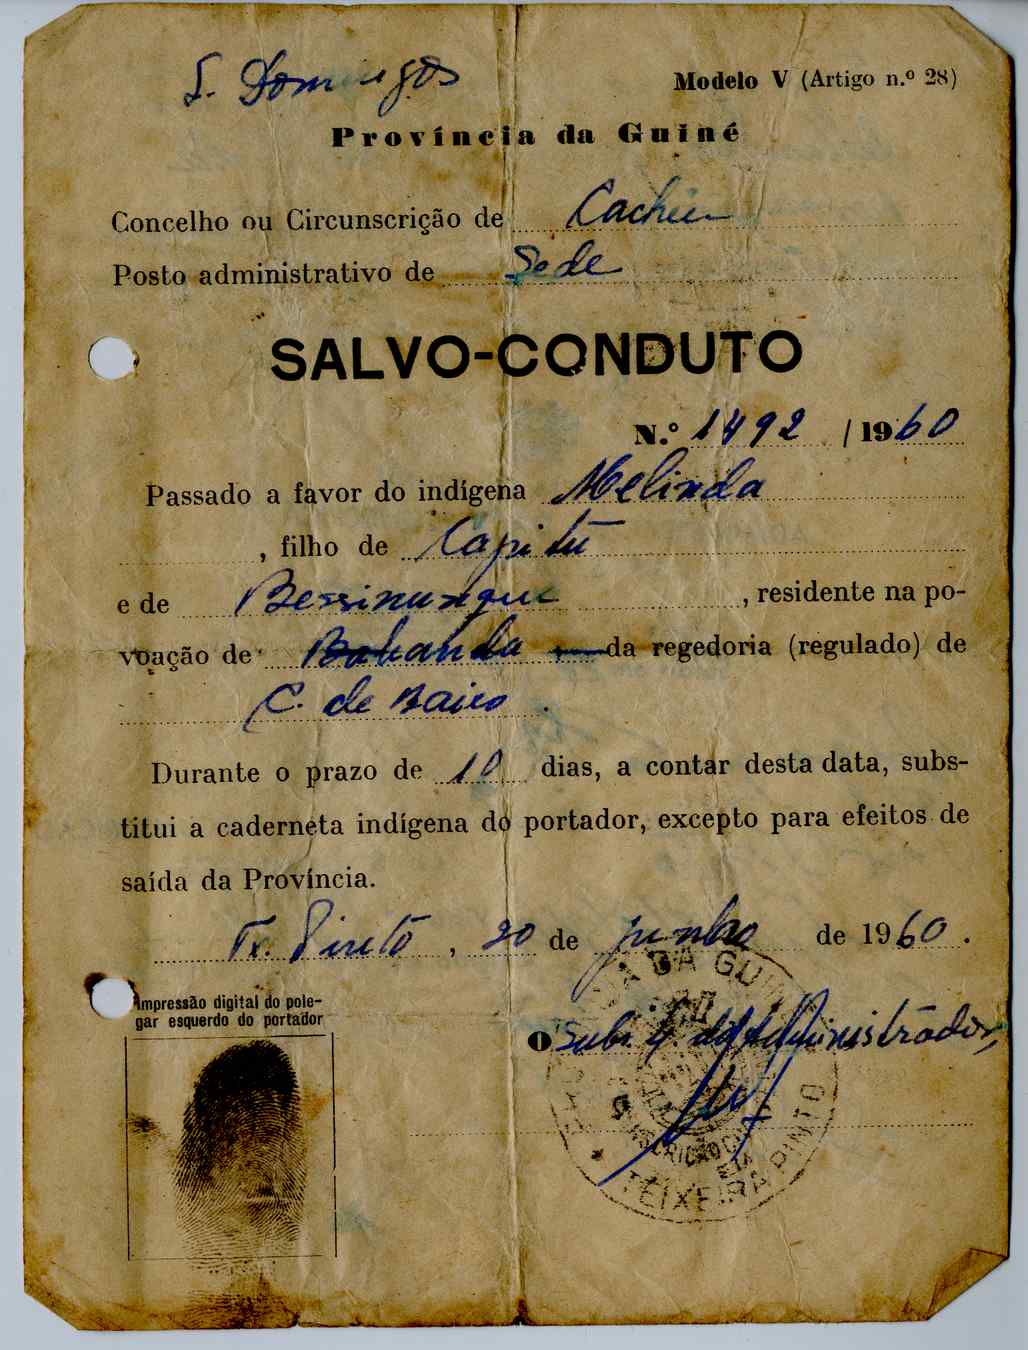 S. Domingos
Modelo V (Artigo n.º 28)
Província da Guiné
Concelho ou Circunscrição de Cacheu
Posto administrativo de Sede
SALVO-CONDUTO
N.º 1492 / 1960
Passado a favor do indígena Melinda
, filho de Capitú
e de Bessinunque, residente na po-
voação de Babanda da regedoria (regulado) de
C. de Baixo
Durante o prazo de 10 dias, a contar desta data, subs-
titui a caderneta indígena do portador, excepto para efeitos de
saída da Província.
Tx. Pinto, 20 de junho de 1960.
Impressão digital do pole-
gar esquerdo do portador
O Administrador,
DA GUINÉ
TEIXEIRA PINTO